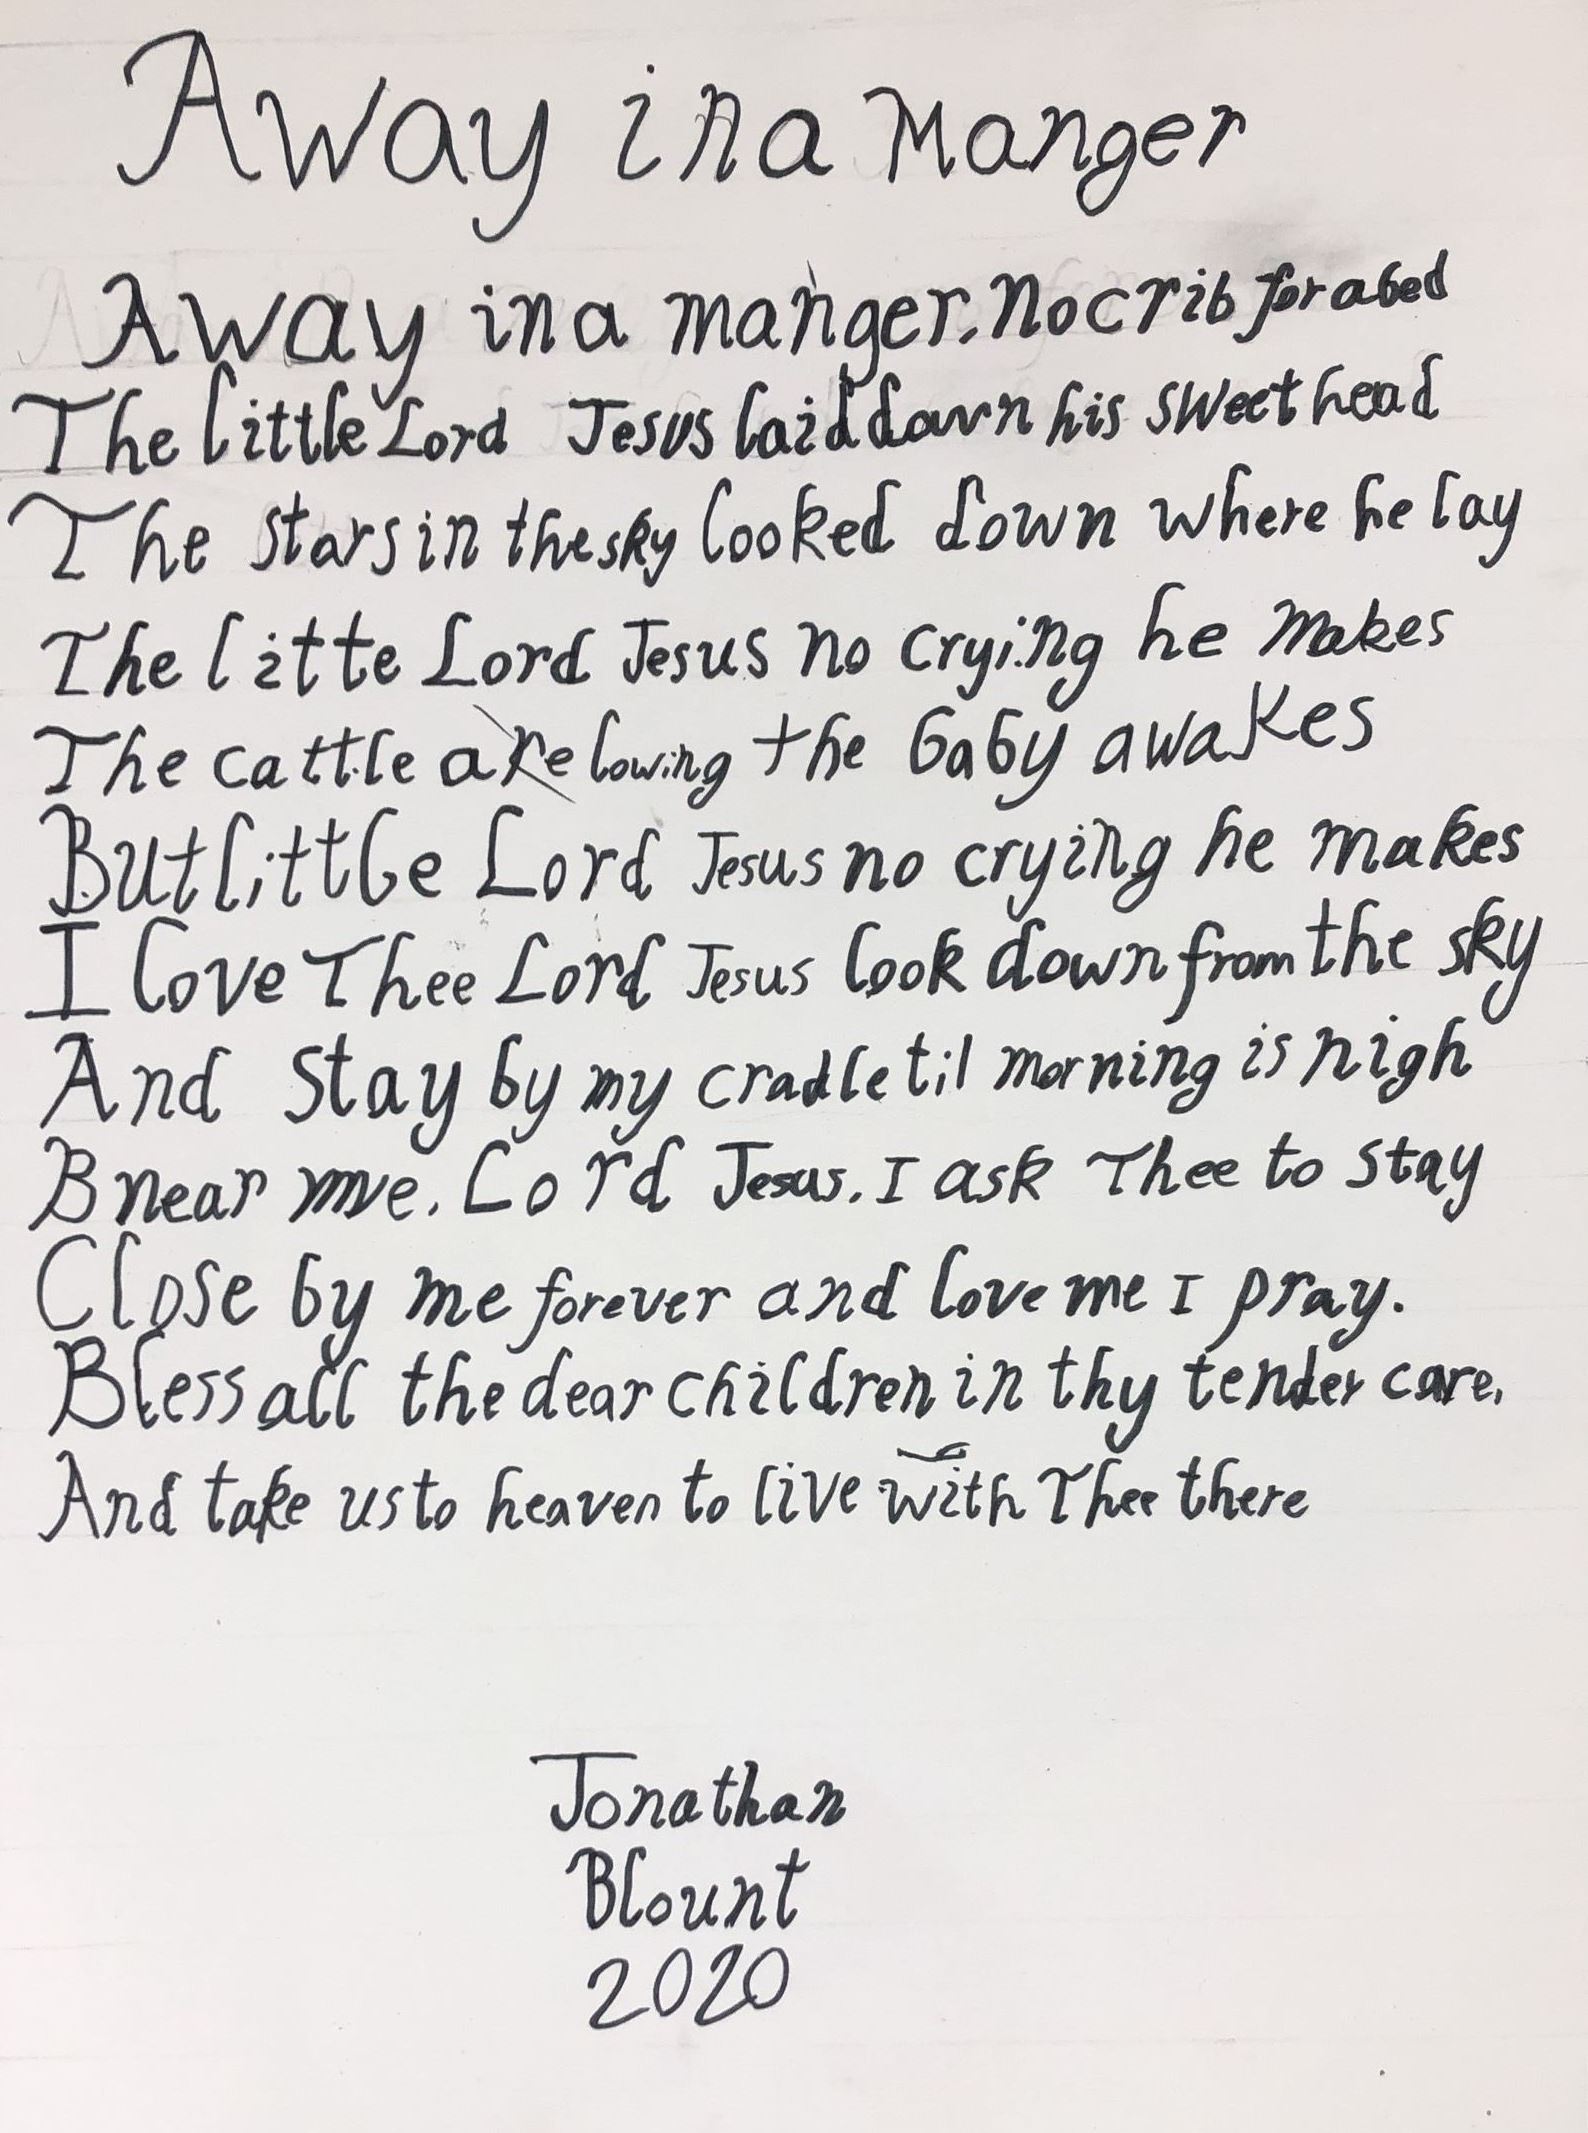 Away in a Manger
Away in a manger. No crib for a bed
The little Lord Jesus laid down his sweet head
The stars in the sky looked down where he lay
The litte Lord Jesus no crying he makes
The cattle are lowing the baby awakes
But little Lord Jesus no crying he makes
I love Thee Lord Jesus look down from the sky
And stay by my cradle til morning is nigh
B near me. Lord Jesus. I ask Thee to stay
Close by me forever and love me I pray.
Bless all the dear children in thy tender care.
And take us to heaven to live with Thee there
Jonathan
Blount
2020